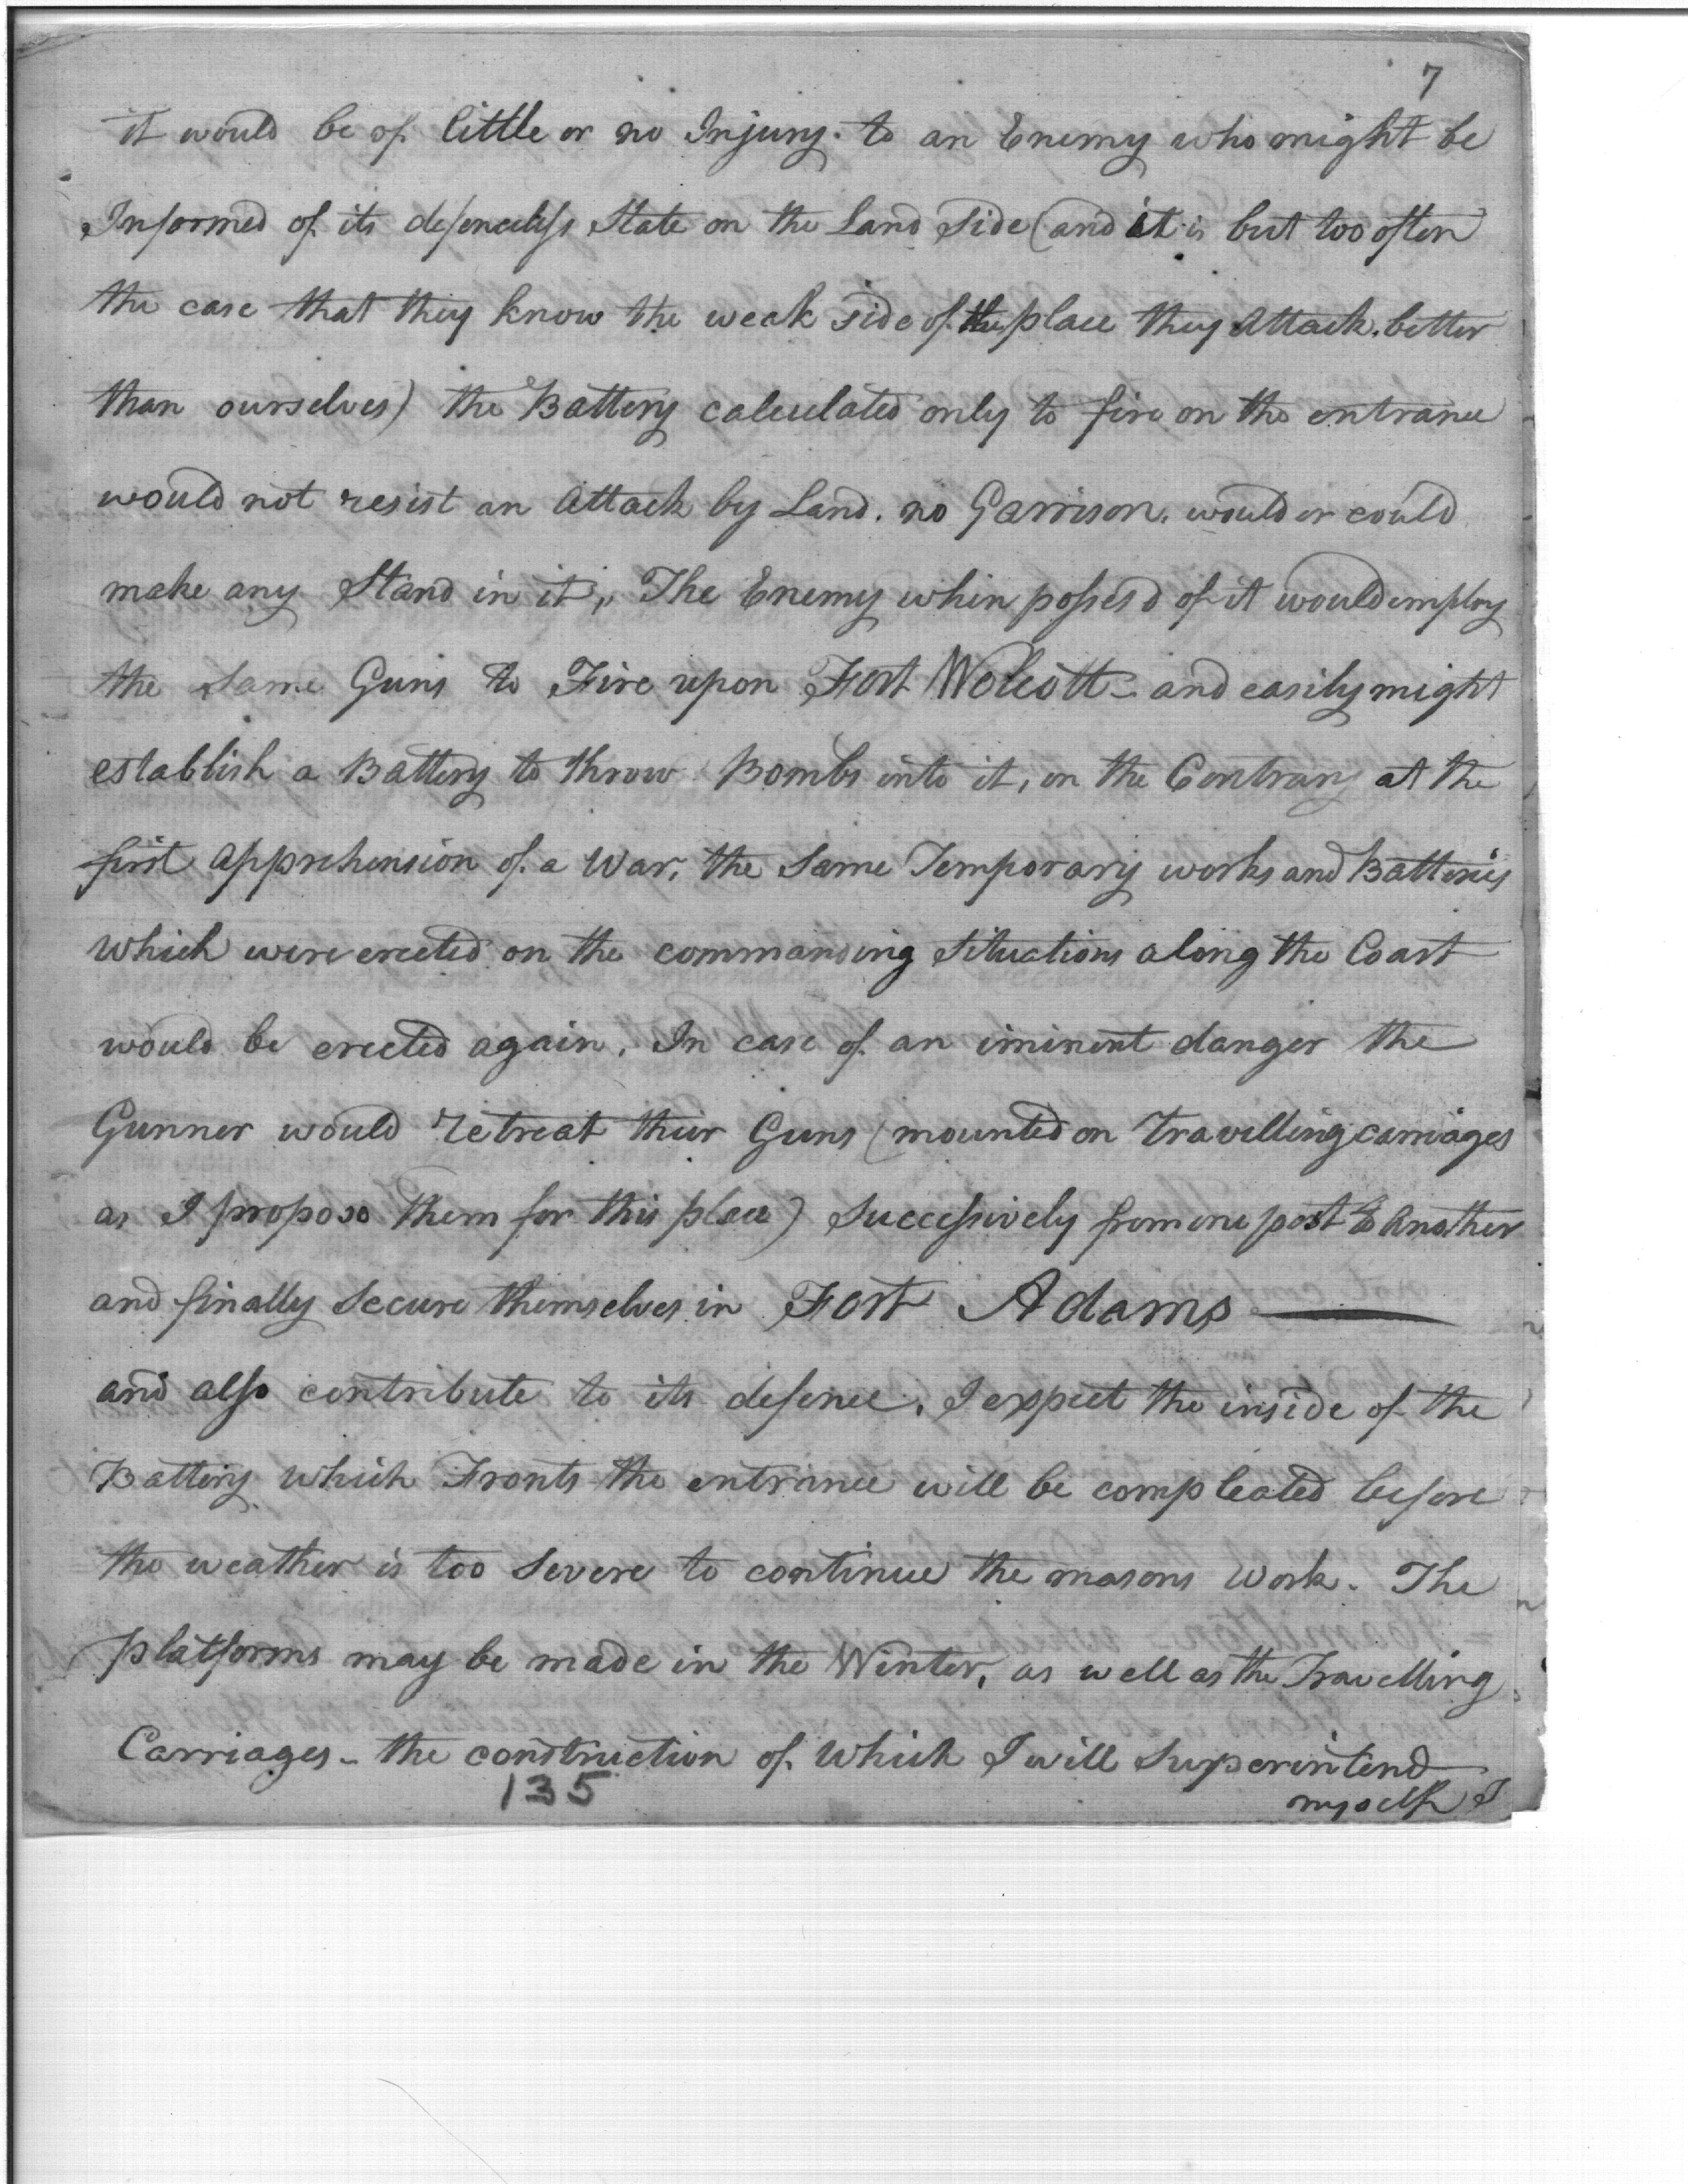 7
it would be of little or no Injury. to an Enemy who might be
Informed of its defenceless State on the Land Side (and it is but too often
the case that they know the weak side of the place they Attack. better
than ourselves) the Battery calculated only to fire on the entrance
would not resist an Attack by Land. no Garrison. would or could
make any Stand in it, The Enemy when possess'd of it would employ
the Same Guns to Fire upon Fort Wolcott - and easily might
establish a Battery to throw Bombs into it, on the Contrary at the
first apprehension of a War, the Same Temporary works and Batteries
which were erected on the commanding Situations along the Coast
would be erected again. In case of an iminent danger the
Gunner would retreat their Guns (mounted on travelling carriages
as I propose them for this place) Successively from one post to another
and finally Secure themselves in Fort Adams —
and also contribute to its defence. I expect the inside of the
Battery which Fronts the entrance will be compleated before
the weather is too Severe to continue the masons Work. The
platforms may be made in the Winter, as well as the Travelling
Carriages - the construction of which I will Superintend
myself I
135